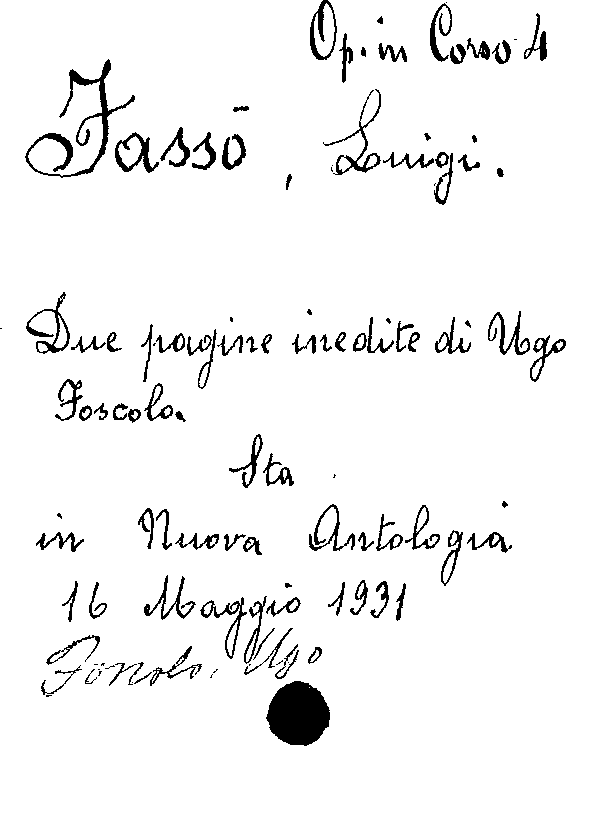 Op. in Corso 4
Fassō, Luigi.
Due pagine inedite di Ugo
Foscolo.
Sta
in Nuova Antologia
16 Maggio 1931
Foscolo, Ugo